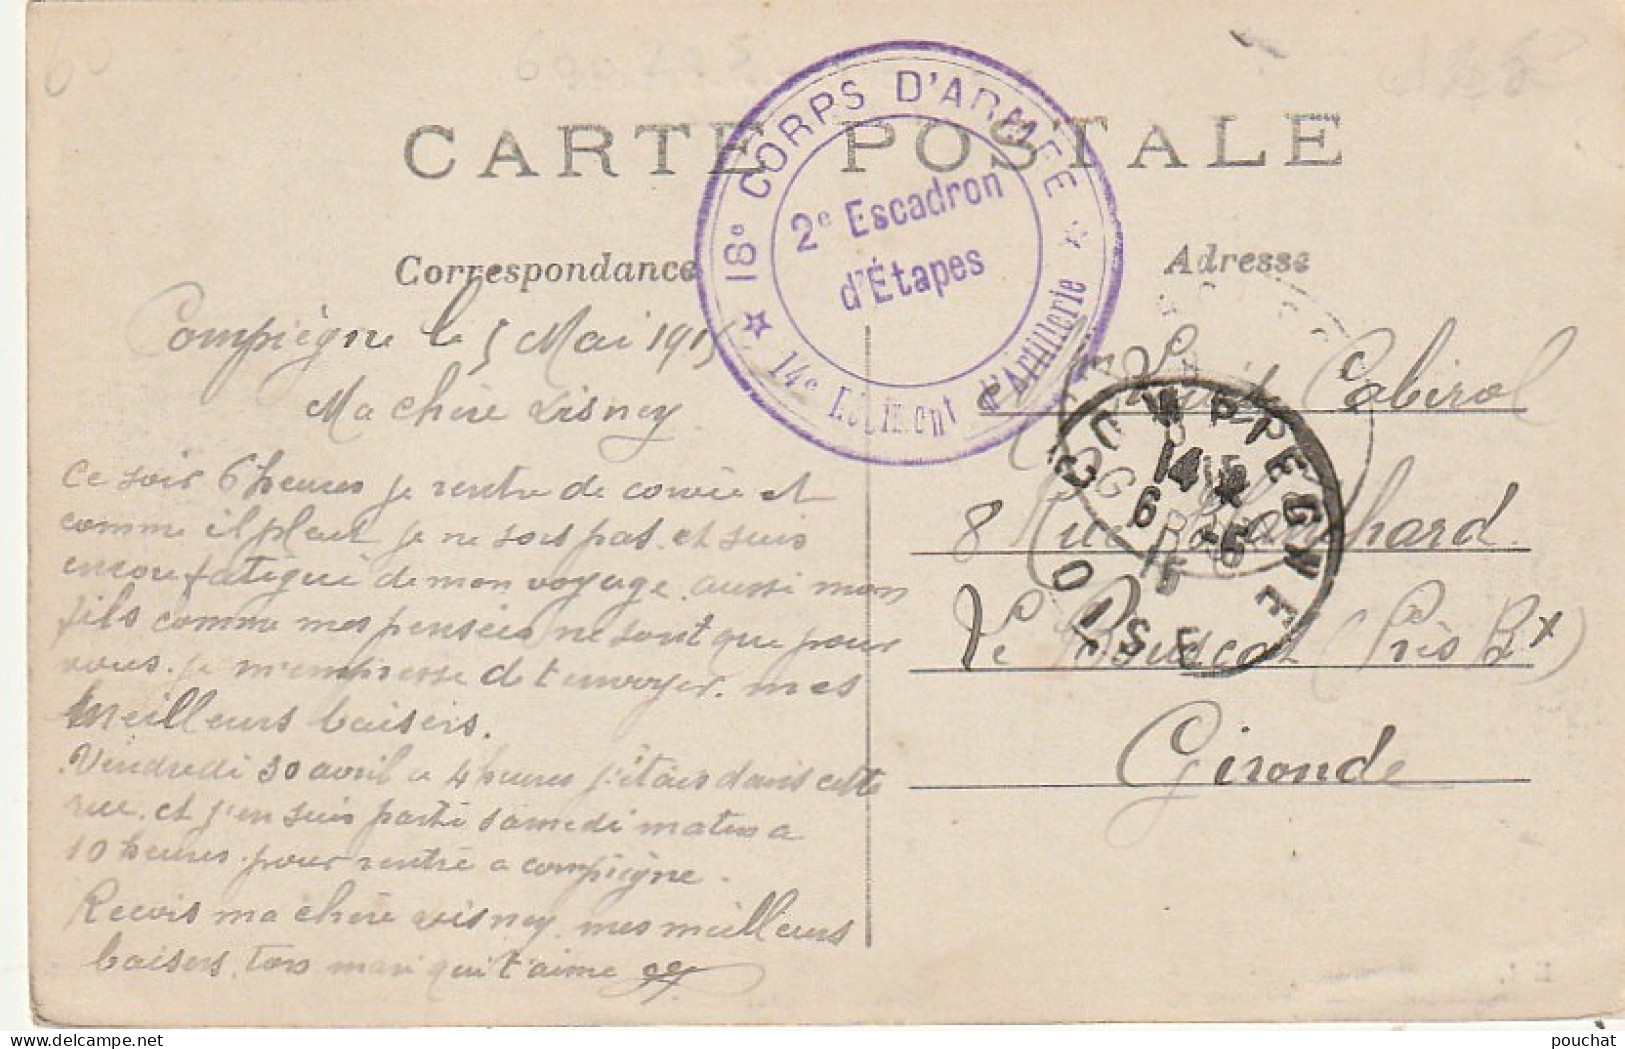 CARTE POSTALE
18e CORPS D'ARMEE
14e Régiment d'Artillerie
2e Escadron
d'Étapes
Correspondance
Adresse
Compiègne le 5 Mai 1915
Ma chère Lisney
Ce soir 6 heures je rentre de corvée et
comme il pleut je ne sors pas. et suis
encore fatigué de mon voyage. aussi mon
fils comme mes pensées ne sont que pour
vous. je m'empresse de t envoyer. mes
meilleurs baisers.
Vendredi 30 avril a 4 heures j'étais dans cette
rue. et j'en suis parti samedi matin a
10 heures. pour rentré a compiègne.
Recois ma chère Lisney. mes meilleurs
baisers. ton mari qui t'aime
Cabirol
8 Rue Blanchard
Le Bouscat (Près Bx)
Gironde
COMPIEGNE
14
6 - 5
15
OISE
pouchat